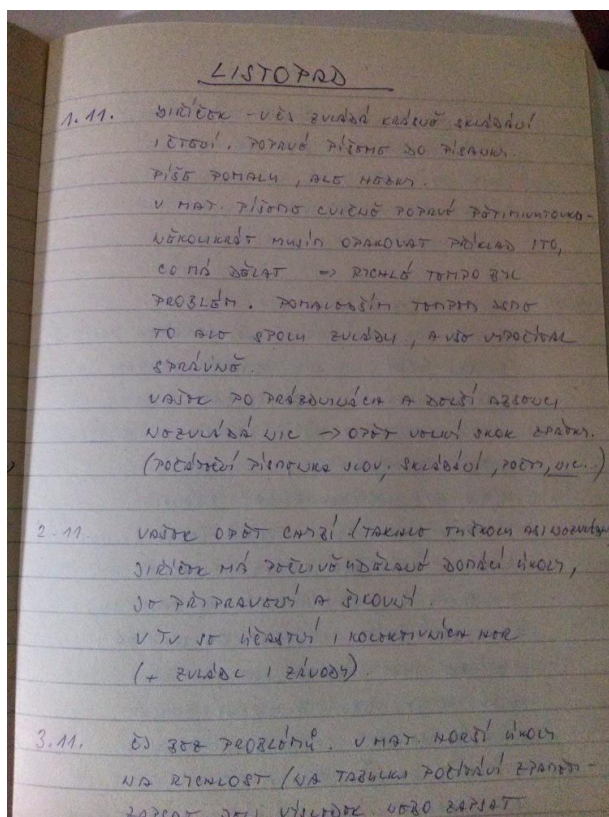 LISTOPAD
1.11. JIŘÍČEK - V ČJ ZVLÁDÁ KRÁSNĚ SKLÁDÁNÍ
I ČTENÍ. POPRVÉ PÍŠEME DO PÍSANKY.
PÍŠE POMALU, ALE HEZKY.
V MAT. PÍŠEME CVIČNĚ POPRVÉ PĚTIMINUTOVKU -
NĚKOLIKRÁT MUSÍM OPAKOVAT PŘÍKLAD I TO,
CO MÁ DĚLAT → RYCHLÉ TEMPO BYL
PROBLÉM. POMALEJŠÍM TEMPEM JSME
TO ALE SPOLU ZVLÁDLI, A VŠE VYPOČÍTAL
SPRÁVNĚ.
VAŠEK PO PRÁZDNINÁCH A DELŠÍ ABSENCI
NEZVLÁDÁ NIC → OPĚT VELKÝ SKOK ZPÁTKY.
(POČÁTEČNÍ PÍSMENKA SLOV, SKLÁDÁNÍ, POČTY, NIC...)
2.11. VAŠEK OPĚT CHYBÍ (TAKHLE TU ŠKOLU ASI
JIŘÍČEK MÁ POCTIVĚ UDĚLANÉ DOMÁCÍ ÚKOLY,
JE PŘIPRAVENÝ A ŠIKOVNÝ.
V TV SE ÚČASTNÍ I KOLEKTIVNÍCH HER
(+ ZVLÁDL I ZÁVODY).
3.11. ČJ BEZ PROBLÉMŮ. V MAT. HORŠÍ ÚKOLY
NA RYCHLOST (NA TABULKU POČÍTÁNÍ ZPAMĚTI -
ZAPSAT VÝSLEDEK NEBO ZAPSAT